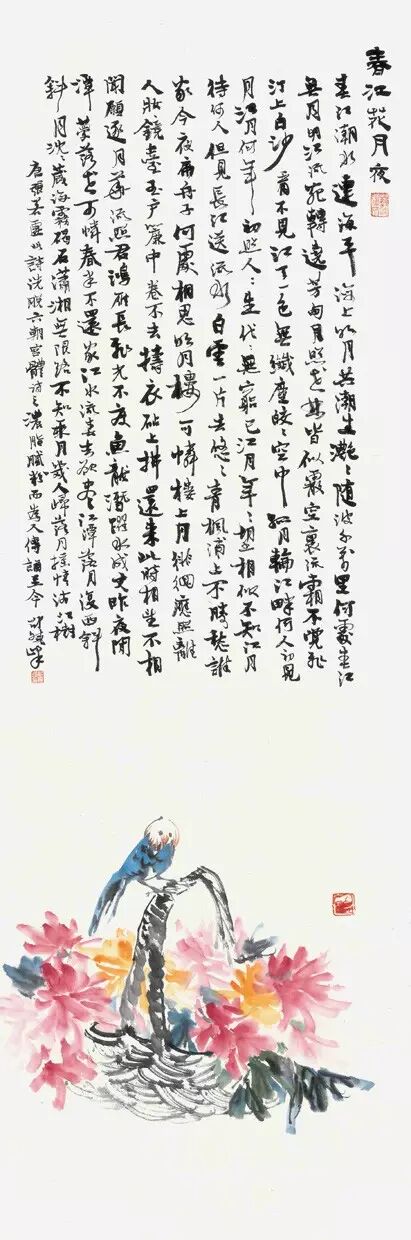 春江花月夜
春江潮水連海平海上明月共潮生灩〻隨波千萬里何處春江
無月明江流宛轉遶芳甸月照花林皆似霰空裏流霜不覺飛
汀上白沙看不見江天一色無纖塵皎〻空中孤月輪江畔何人初見
月江月何年初照人〻生代〻無窮已江月年〻望相似不知江月
待何人但見長江送流水白雲一片去悠〻青楓浦上不勝愁誰
家今夜扁舟子何處相思明月樓可憐樓上月徘徊應照離
人妝鏡臺玉戶簾中卷不去擣衣砧上拂還來此時相望不相
聞願逐月華流照君鴻雁長飛光不度魚龍潛躍水成文昨夜閒
潭夢落花可憐春半不還家江水流春去欲盡江潭落月復西斜
斜月沈〻藏海霧碣石瀟湘無限路不知乘月幾人歸落月搖情滿江樹
唐張若虛此詩洗脫六朝宮體詩之濃脂膩粉而為人傳誦至今